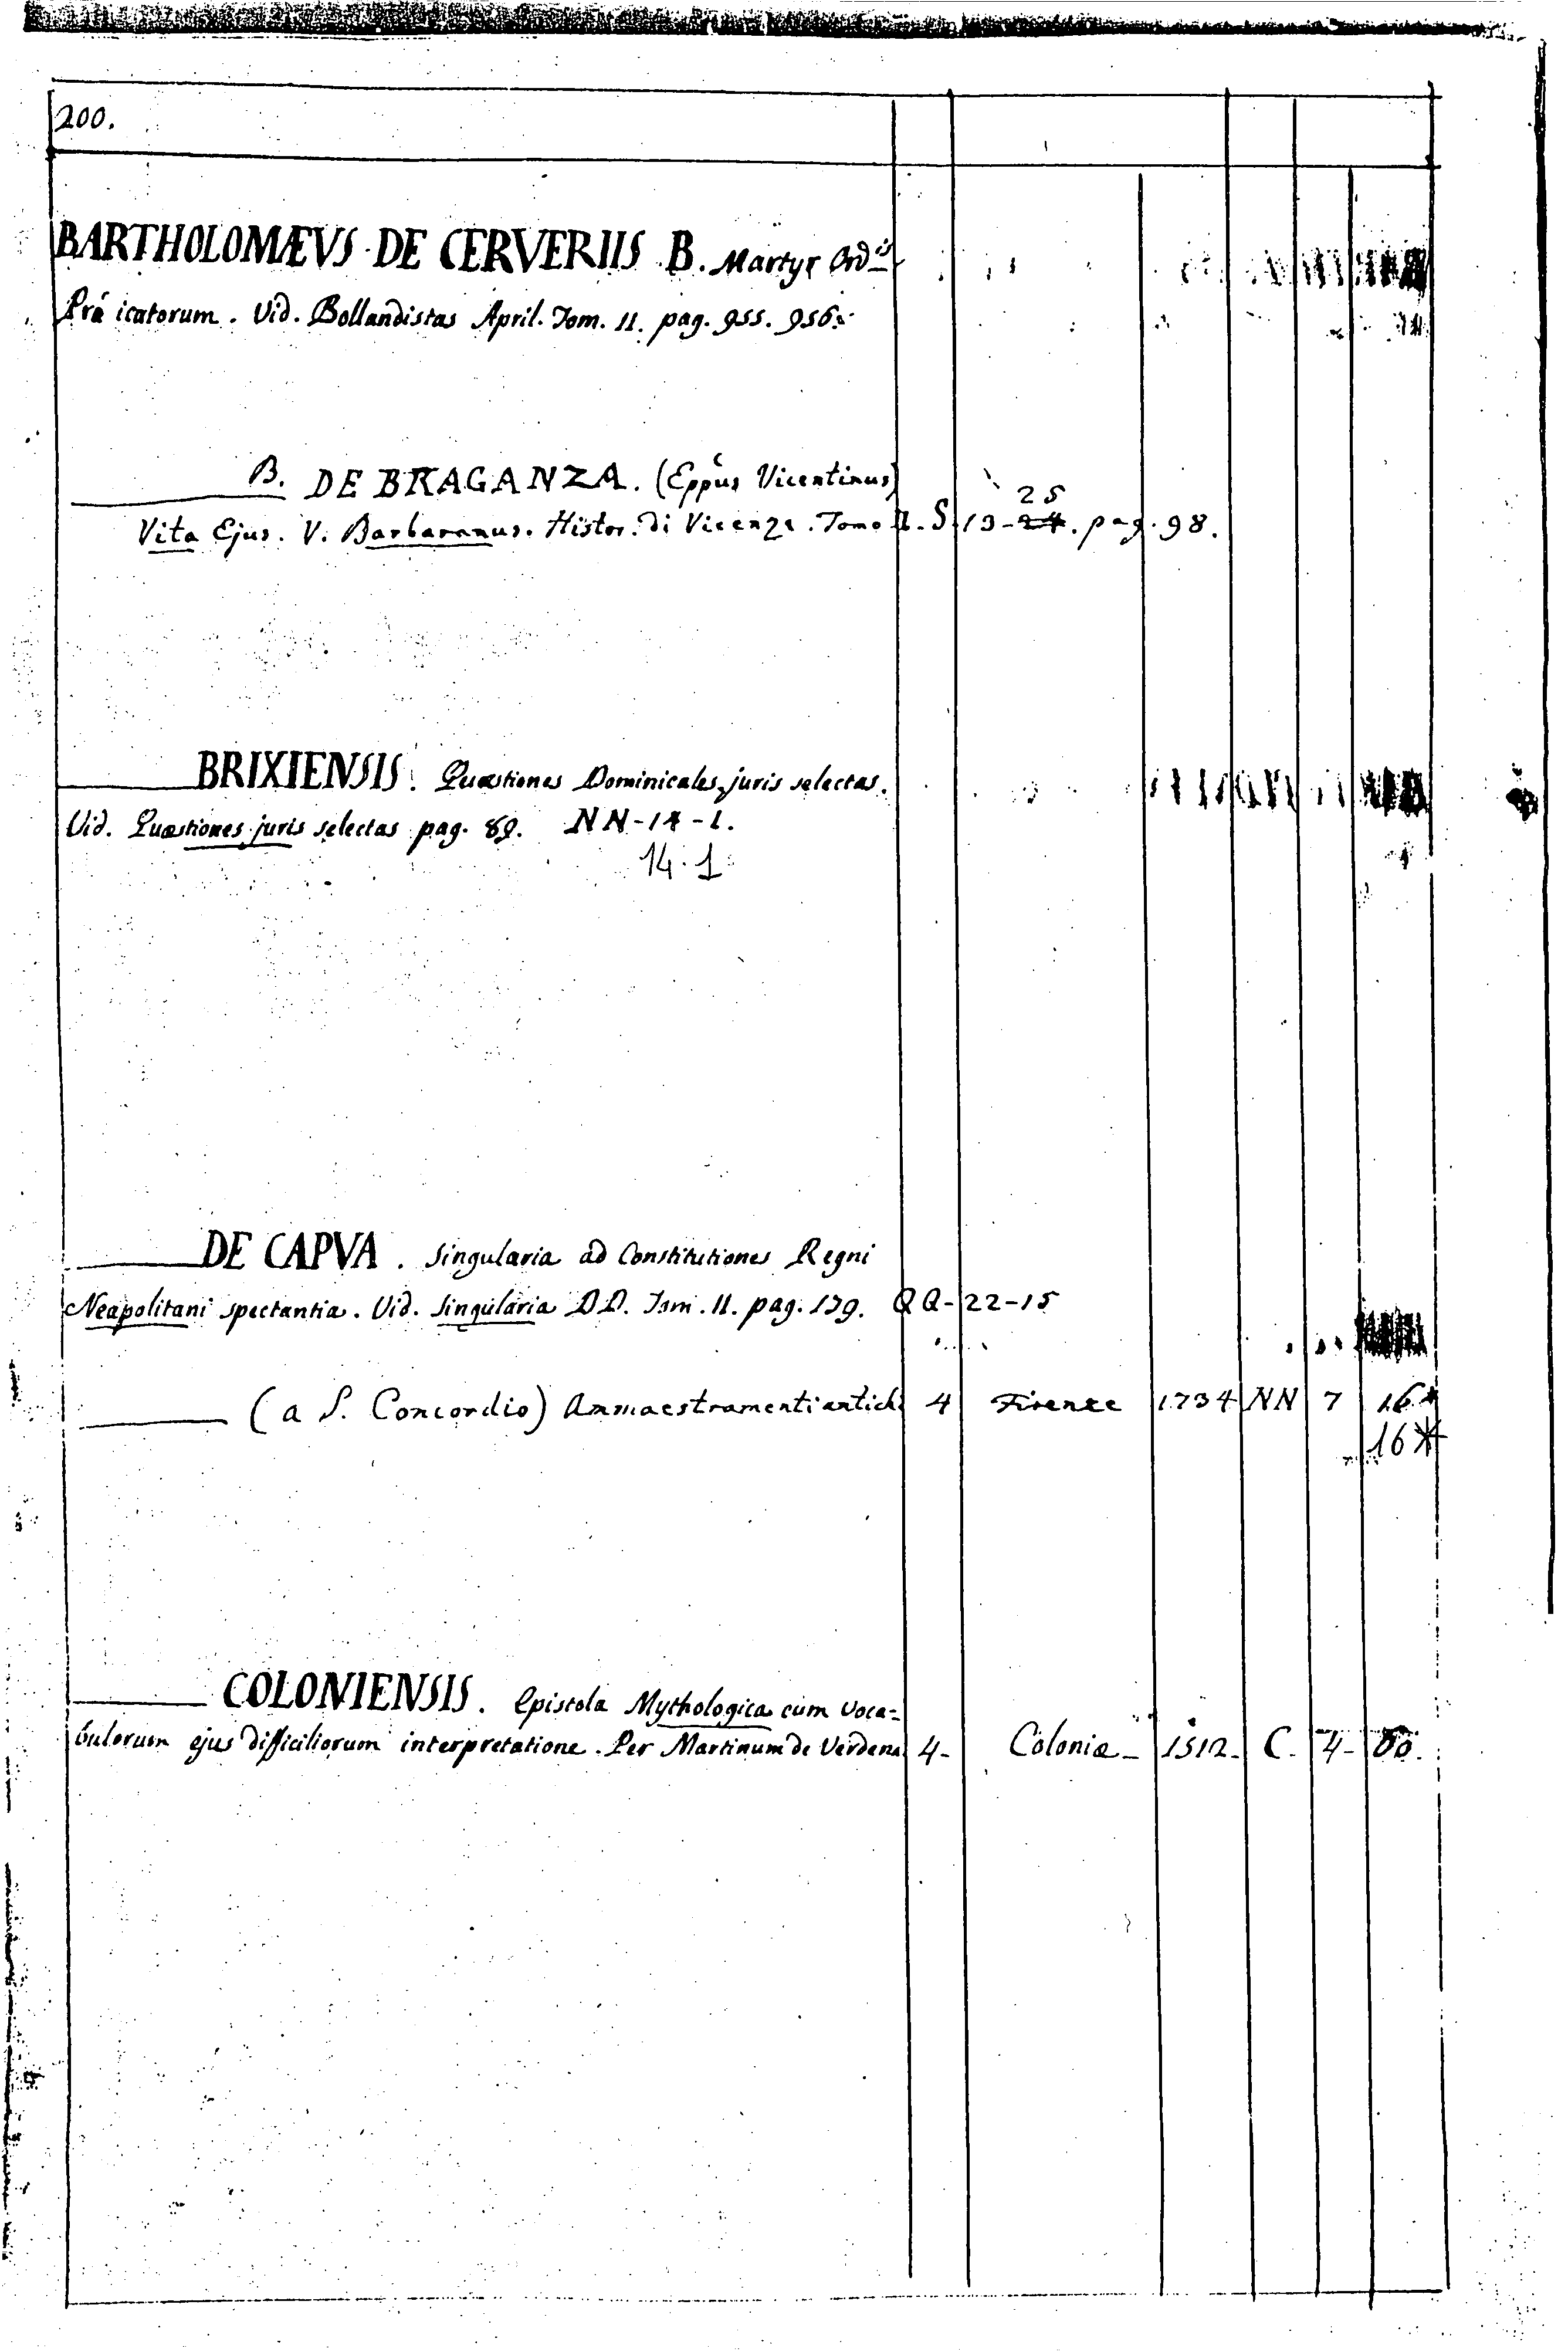 200.
BARTHOLOMÆVS DE CERVERIIS B. Martyr Ordis
Præ icatorum. Vid. Bollandistas April. Tom. II. pag. 955. 956.
B. DE BRAGANZA. (Eppus Vicentinus)
25
Vita Ejus. V. Barbaranus. Histor. di Vicenza. Tomo II. S 13-24. pag. 98.
BRIXIENSIS. Quæstiones Dominicales, juris selectas.
Vid. Quæstiones juris selectas pag. 89. NN-14-1.
14. 1
DE CAPVA. Singularia ad Constitutiones Regni
Neapolitani spectantia. Vid. Singularia DD. Tom. II. pag. 139. QQ-22-15
(a S. Concordio) Ammaestramenti antichi 4 Firenze 1734 NN 7 16*
16*
COLONIENSIS. Epistola Mythologica cum voca=
bulorum ejus difficiliorum interpretatione. Per Martinum de Verdena 4- Coloniæ- 1512- C. 4-